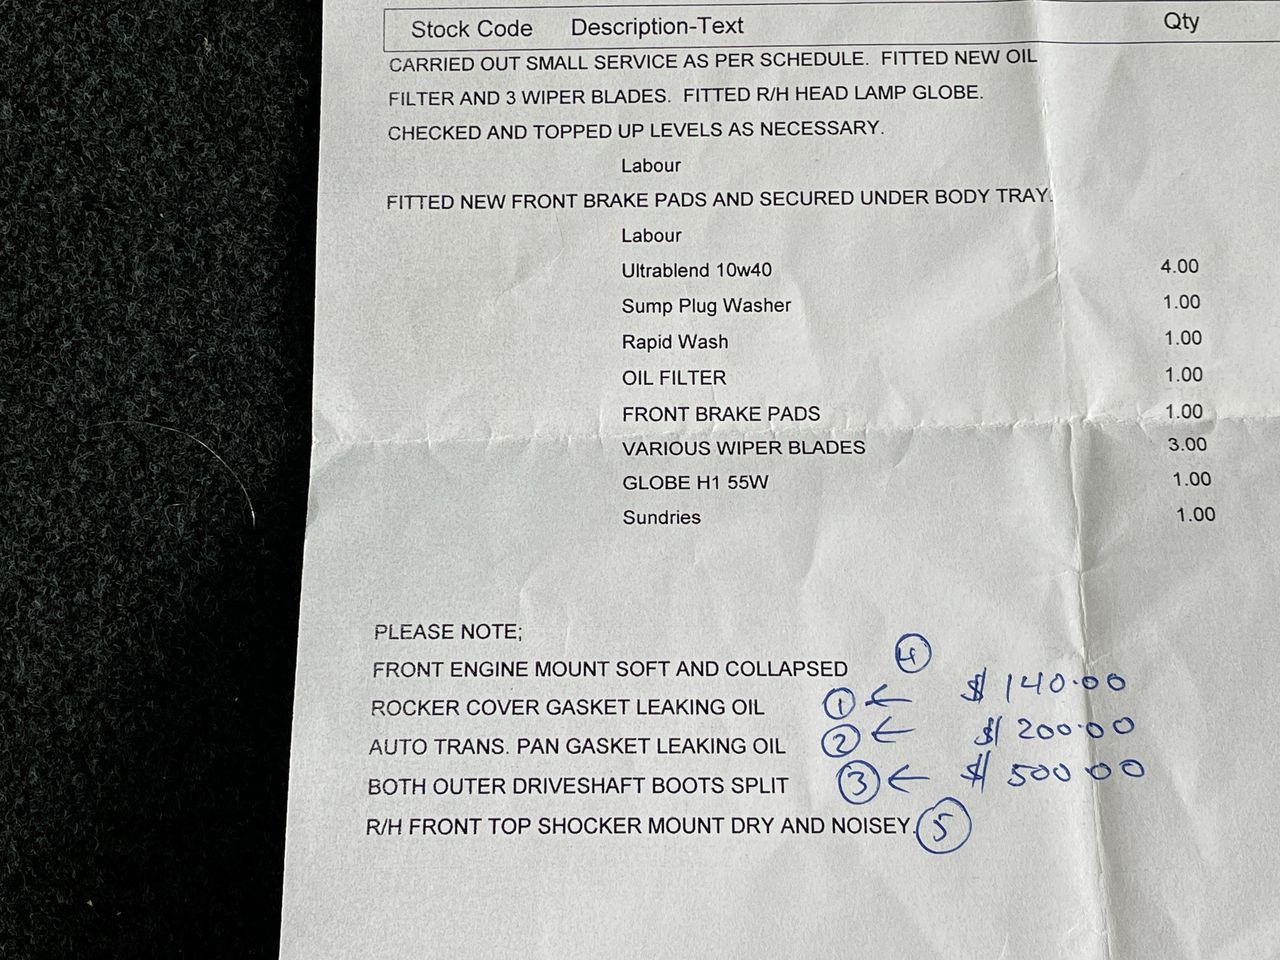 Stock Code Description-Text Qty
CARRIED OUT SMALL SERVICE AS PER SCHEDULE. FITTED NEW OIL
FILTER AND 3 WIPER BLADES. FITTED R/H HEAD LAMP GLOBE.
CHECKED AND TOPPED UP LEVELS AS NECESSARY.
Labour
FITTED NEW FRONT BRAKE PADS AND SECURED UNDER BODY TRAY.
Labour
Ultrablend 10w40 4.00
Sump Plug Washer 1.00
Rapid Wash 1.00
OIL FILTER 1.00
FRONT BRAKE PADS 1.00
VARIOUS WIPER BLADES 3.00
GLOBE H1 55W 1.00
Sundries 1.00
PLEASE NOTE;
FRONT ENGINE MOUNT SOFT AND COLLAPSED 4
ROCKER COVER GASKET LEAKING OIL 1 ← $ 140.00
AUTO TRANS. PAN GASKET LEAKING OIL 2 ← $ 200.00
BOTH OUTER DRIVESHAFT BOOTS SPLIT 3 ← $ 500.00
R/H FRONT TOP SHOCKER MOUNT DRY AND NOISEY. 5